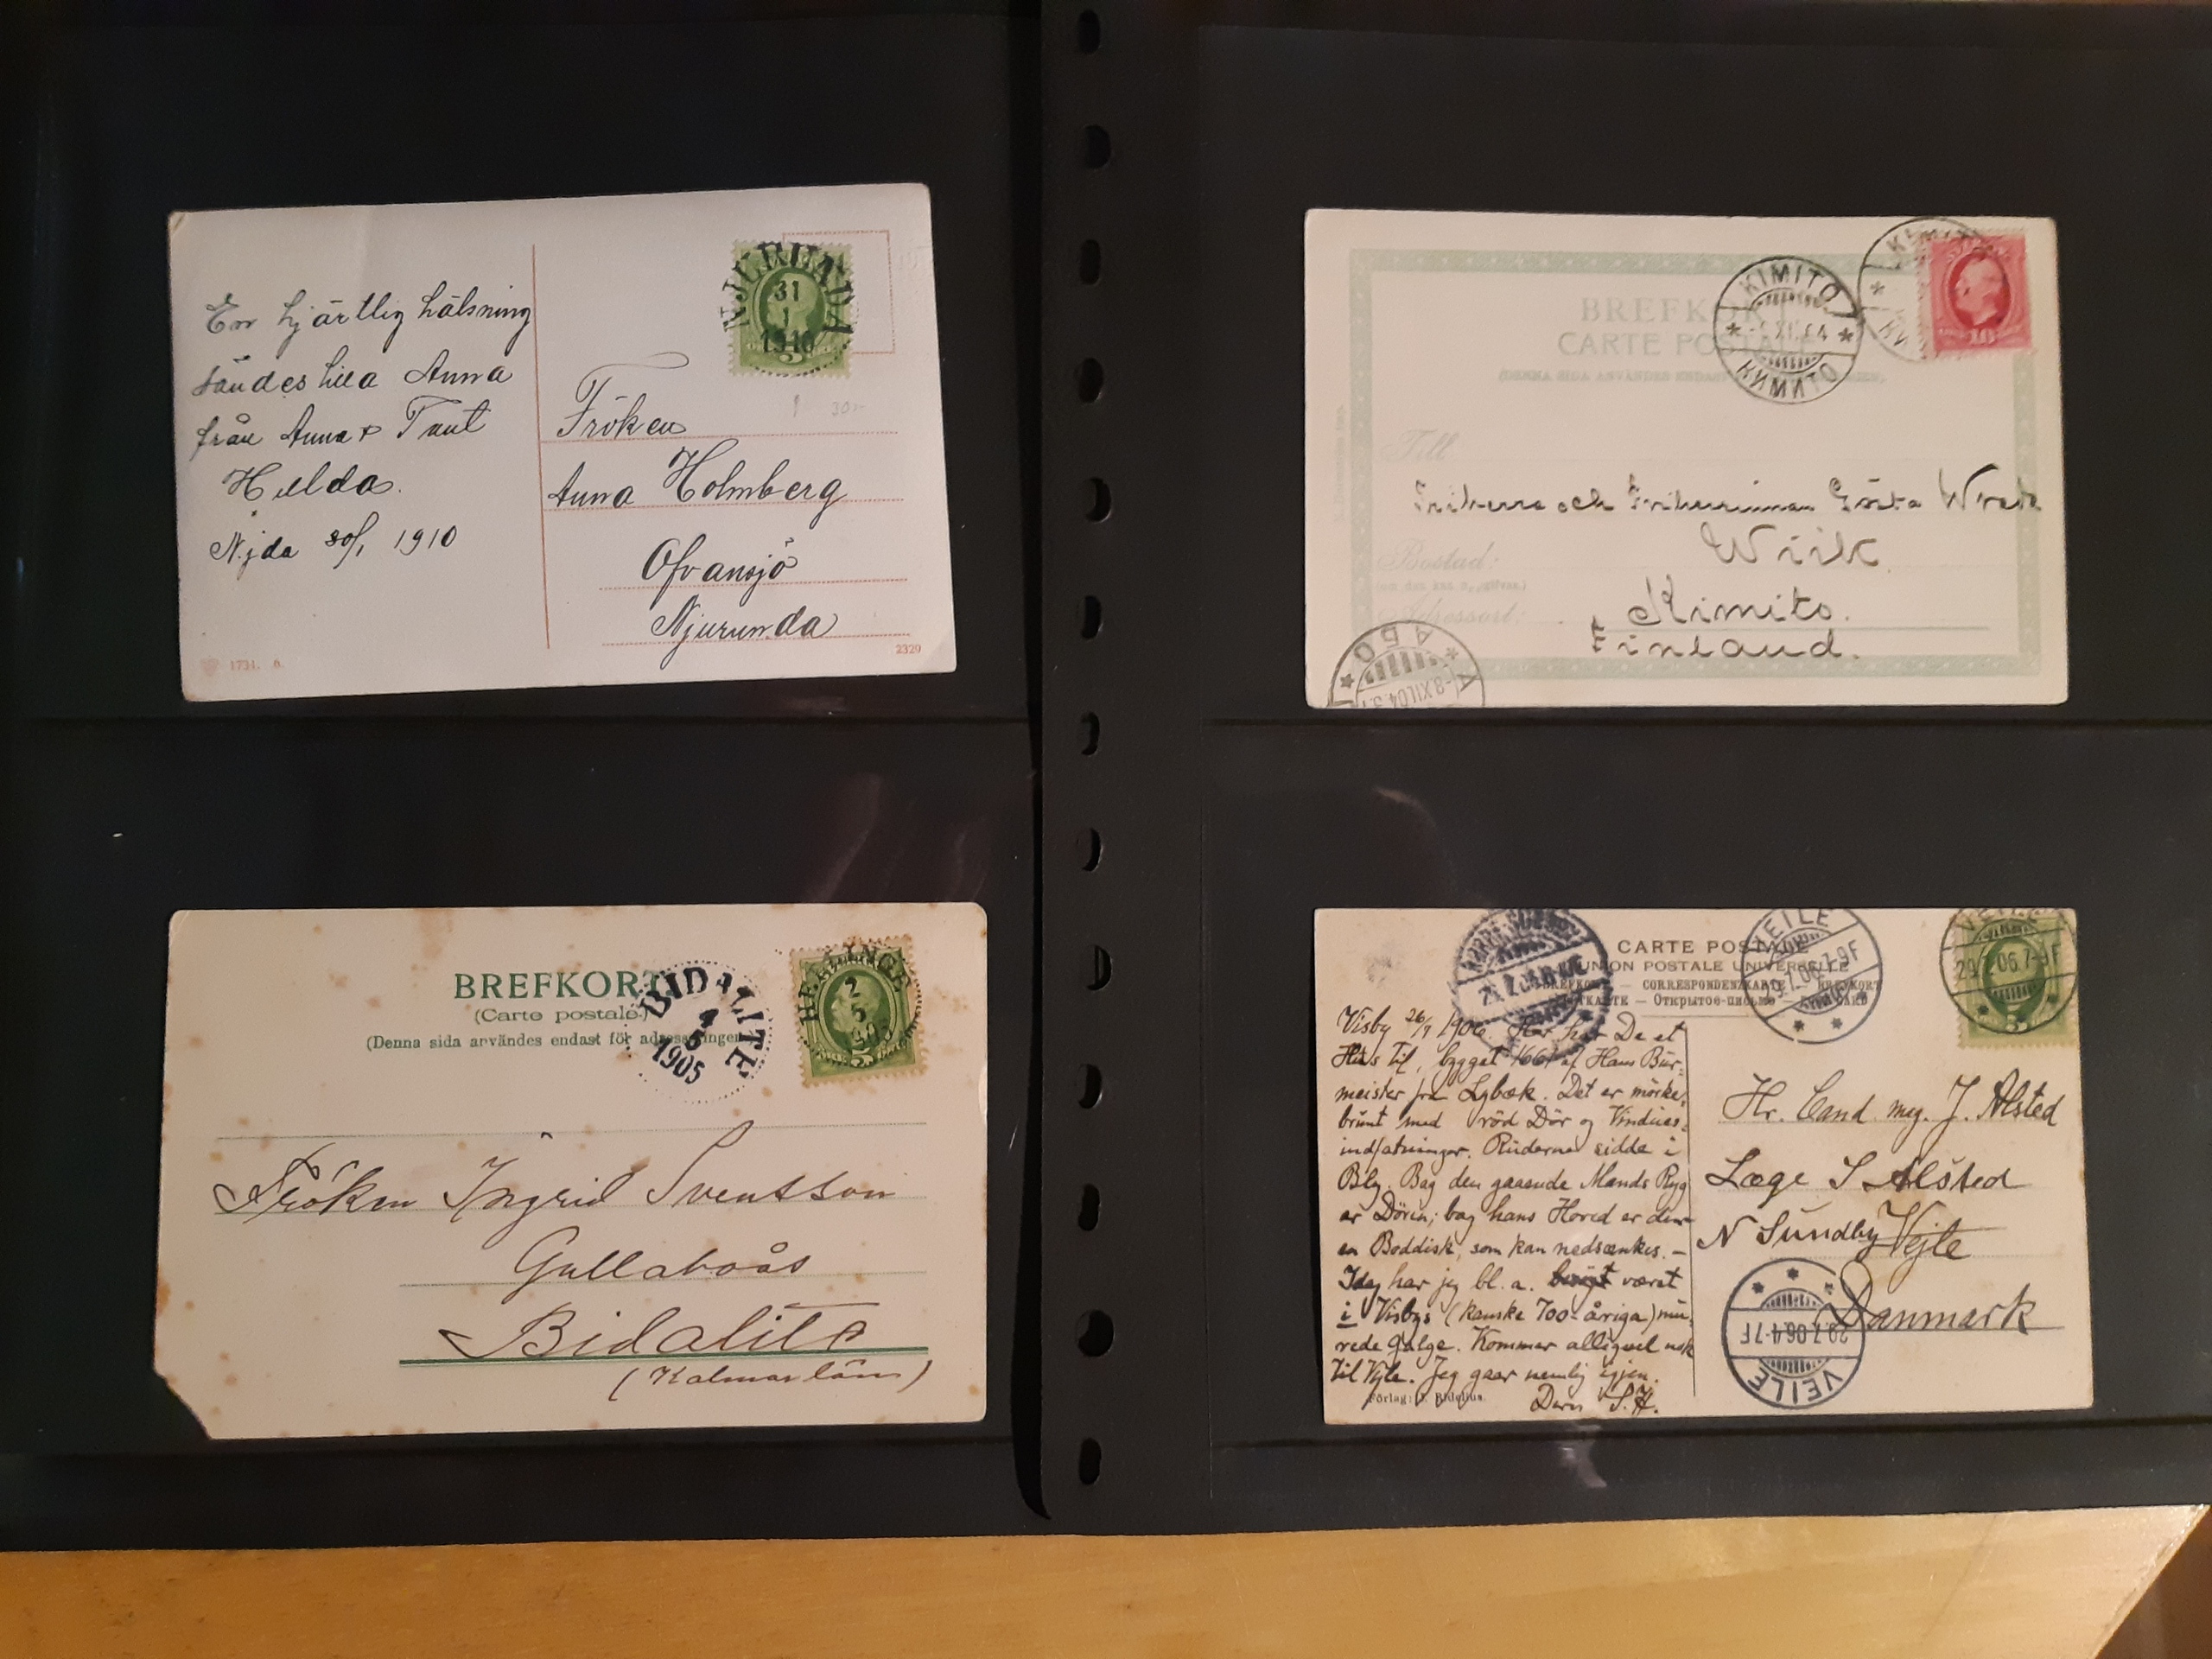 En hjärtlig hälsning
sändes lilla Anna
från Anna o Tant
Hulda.
Njda 30/1 1910
NJURUNDA
31
1
1910
Fröken
Anna Holmberg
Ofvansjö
Njurunda
1731. 6.
2320
BREFKORT
CARTE POSTALE
(DENNA SIDA ANVÄNDES ENDAST
KIMITO
XII.04
КИМИТО
KIMITO
10
Till
Friherre och Friherrinnan Gösta Wrede
Bostad:
Wiik
Adressort:
Kimito.
Finland.
АБО
-8.XII.04
BREFKORT
(Carte postale)
(Denna sida användes endast för adresseringen
BIDALITE
4
5
1905
2
5
5
Fröken Ingrid Svensson
Gullaboås
Bidalite
(Kalmar län)
CARTE POSTALE
UNION POSTALE UNIVERSELLE
BREFKORT — CORRESPONDENZKARTE — BREFKORT
Открытое письмо
VEJLE
29.7.06.7-9F
VEJLE
29.7.06.7-9F
Visby 26/7 1906. Her har De et
Hus til, bygget 1661 af Hans Bur-
meister fra Lybæk. Det er mörke-
brunt med röd Dör og Vindues-
indfatninger. Ruderne sidde i
Bly. Bag den gaaende Mands Ryg
er Dören; bag hans Hoved er der
en Boddisk, som kan nedsænkes. —
Idag har jeg bl. a. været
i Visbys (kanske 700-åriga) mu-
rede Galge. Kommer alligevel nok
til Vejle. Jeg gaar nemlig igjen.
Deres S.A.
Hr. Cand. mag. J. Alsted
Læge S Alsted
N Sundby Vejle
Danmark
29.7.06.4-7F
VEJLE